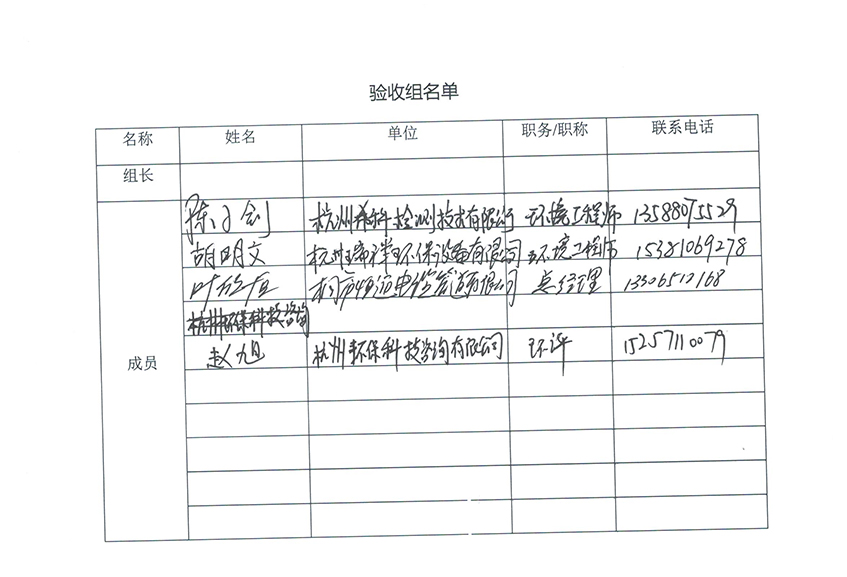 验收组名单
名称 姓名 单位 职务/职称 联系电话
组长
陈 剑 杭州希科检测技术有限公司 环境工程师 13588075529
胡明文 杭州 环保设备有限公司 环境工程师 15381069278
叶 有限公司 总经理 13306512168
杭州环保科技咨询
成员
赵旭 杭州环保科技咨询有限公司 环评 15257110079